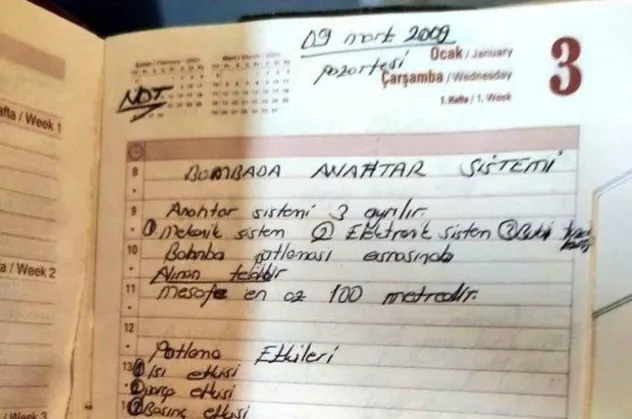 09 mart 2009
Ocak / January
pazartesi
Çarşamba / Wednesday
3
1. Hafta / 1. Week
NOT
Hafta / Week 1
8 BOMBADA ANAHTAR SİSTEMİ
9 Anahtar sistemi 3 ayrılır.
① Mekanik sistem ② Elektronik sistem ③
10 Bomba patlaması esnasında
Alınan tedbir
11 Mesafe en az 100 metredir.
12
a / Week 2
Patlama Etkileri
13 ① Isı etkisi
② etkisi
③ Basınç etkisi
/ Week 3